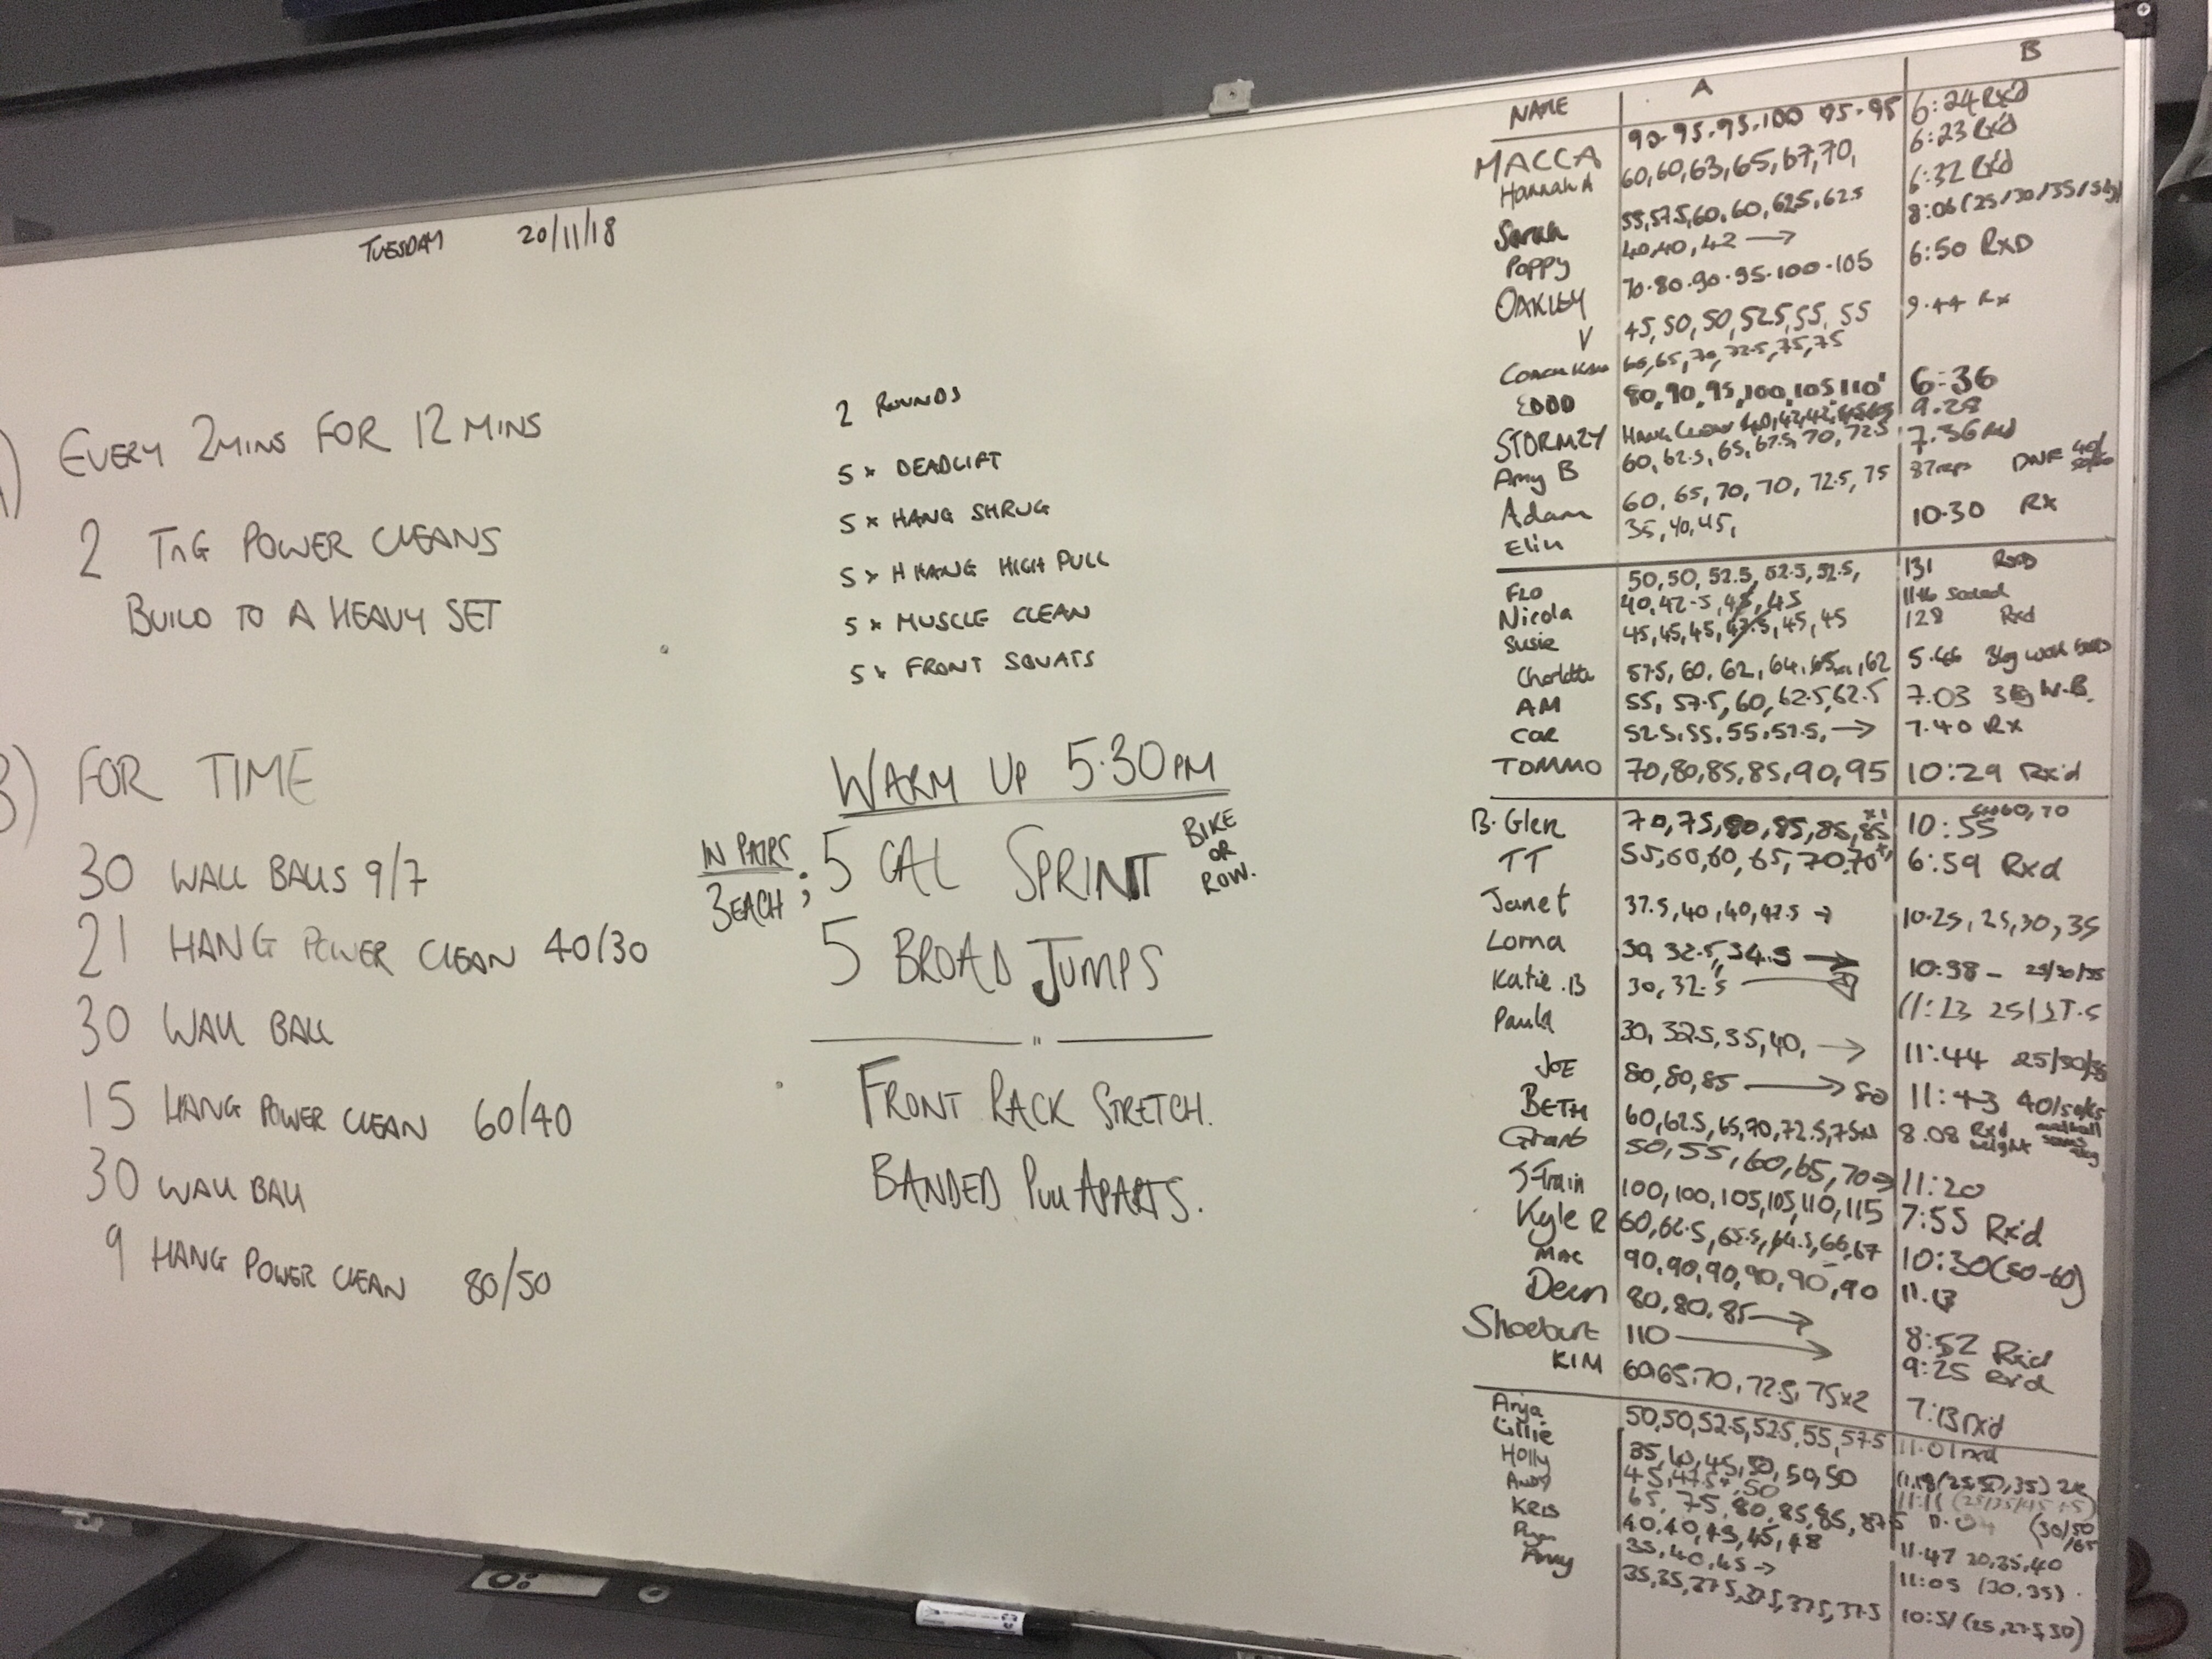 TUESDAY 20/11/18
A)
EVERY 2MINS FOR 12 MINS
2 TnG POWER CLEANS
BUILD TO A HEAVY SET
B)
FOR TIME
30 WALL BALLS 9/7
21 HANG POWER CLEAN 40/30
30 WALL BALL
15 HANG POWER CLEAN 60/40
30 WALL BALL
9 HANG POWER CLEAN 80/50
2 ROUNDS
5 x DEADLIFT
5 x HANG SHRUG
5 x H HANG HIGH PULL
5 x MUSCLE CLEAN
5 x FRONT SQUATS
WARM UP 5.30PM
IN PAIRS
3 EACH ; 5 CAL SPRINT BIKE OR ROW.
5 BROAD JUMPS
"
FRONT RACK STRETCH.
BANDED PULL APARTS.
NAME A B
MACCA 90.95.95.100 95.95 6:24 Rx'd
Hannah A 60,60,63,65,67,70, 6:23 Rx'd
Sarah 55,57.5,60,60,62.5,62.5 6:32 Rx'd
Poppy 40,40,42 → 8:06 (25/30/35/
OAKLEY 70.80.90.95.100.105 6:50 RxD
V 45,50,50,52.5,55,55 9.44 Rx
Coach 60,65,70,72.5,75,75
EDDD 80,90,95,100,105,110 6:36
STORMZY HANG CLEAN 40,42,42, 9.28
Amy B 60,62.5,65,67.5,70,72.5 7.36 Rxd
Adam 60,65,70,70,72.5,75 87reps DNF
Elin 35,40,45, 10.30 Rx
FLO 50,50,52.5,52.5,52.5, 131 RxD
Nicola 40,42.5,45,45 Scaled
Susie 45,45,45,47.5,45,45 128 Rxd
Charlotte 57.5,60,62,64,65,62 5.46 3kg wall balls
AM 55,57.5,60,62.5,62.5 7.03 3kg W.B.
Car 52.5,55,55,57.5, → 7.40 Rx
TOMMO 70,80,85,85,90,95 10:29 Rx'd
B.Glen 70,75,80,85,85,85 x1 10:55 60,70
TT 55,60,60,65,70,70 x1 6:59 Rxd
Janet 37.5,40,40,42.5 → 10.25, 25,30,35
Lorna 30, 32.5, 34.5 → 10:38 - 25/30/35
Katie.B 30,32.5 → 11:23 25/27.5
Paula 30,32.5,35,40, → 11:44 25/30/35
JOE 80,80,85 → 80 11:43 40/50/65
BETH 60,62.5,65,70,72.5,75 8.08 Rxd weight
Grant 50,55,60,65,70 → 11:20
J-Train 100,100,105,105,110,115 7:55 Rx'd
Kyle R 60,62.5,65.5,64.5,66,67 10:30 (50-60)
MAC 90,90,90,90,90,90 11.13
Dean 80,80,85 →
Shoebart 110 → 8:52 Rx'd
KIM 60,65,70,72.5,75x2 9:25 Rx'd
7:13 rxd
Anja 50,50,52.5,52.5,55,57.5 11.01 rxd
Lillie 35,40,45,50,50,50
Holly 45,47.5,50
Andy 65,75,80,85,85,87.5 (30/50/65
KRIS 40,40,43,45,48 11.47 20,35,40
Ryan 35,40,45 → 11:05 (30,35).
Amy 35,35,37.5,37.5,37.5,37.5 10:51 (25,27.5,30)